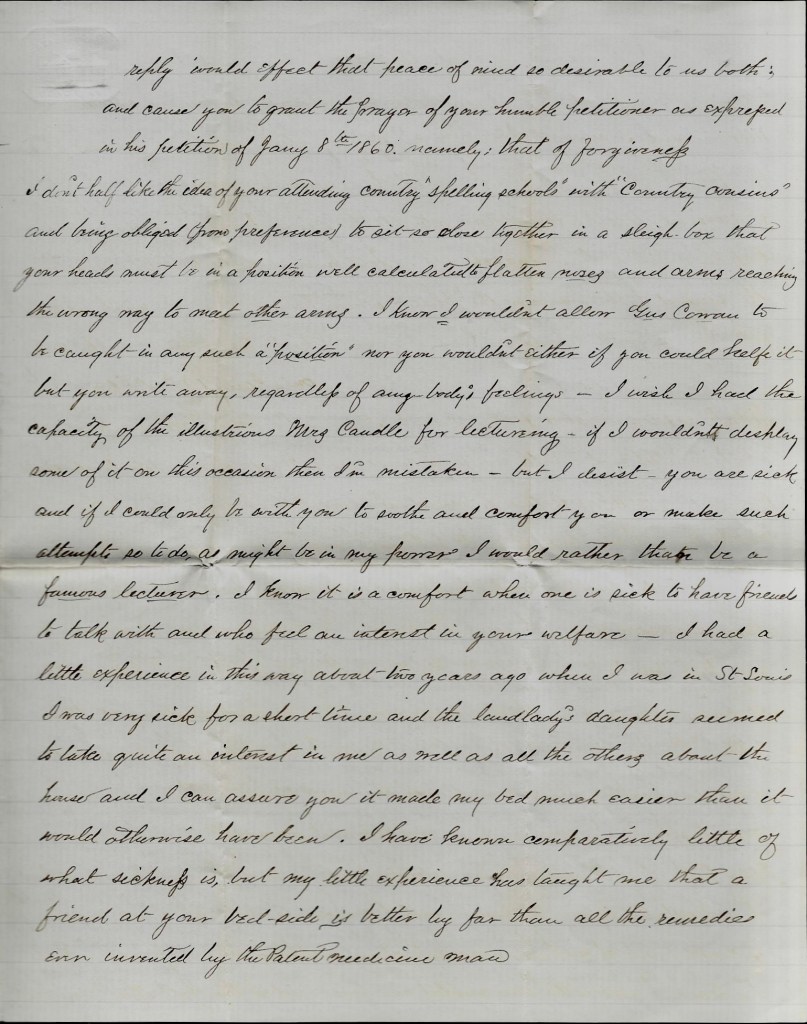 reply would effect that peace of mind so desirable to us both;
and cause you to grant the Prayer of your humble petitioner as expressed
in his petition of Jany 8th 1860. namely; that of forgiveness
I don't half like the idea of your attending country "spelling schools" with "Country cousins"
and being obliged (from preference) to sit so close together in a sleigh-box that
your heads must be in a position well calculated to flatten noses and arms reaching
the wrong way to meet other arms. I know I wouldn't allow Gus Cowan to
be caught in any such a "position" nor you wouldn't either if you could help it
but you write away, regardless of any-body's feelings – I wish I had the
capacity of the illustrious Mrs Caudle for lecturing – if I wouldn't display
some of it on this occasion then I'm mistaken – but I desist – you are sick
and if I could only be with you to soothe and comfort you or make such
attempts so to do, as might be in my power I would rather than be a
famous lecturer. I know it is a comfort when one is sick to have friends
to talk with and who feel an interest in your welfare – I had a
little experience in this way about two years ago when I was in St Louis
I was very sick for a short time and the landlady's daughter seemed
to take quite an interest in me as well as all the others about the
house and I can assure you it made my bed much easier than it
would otherwise have been. I have known comparatively little of
what sickness is, but my little experience has taught me that a
friend at your bed-side is better by far than all the remedies
ever invented by the Patent medicine man